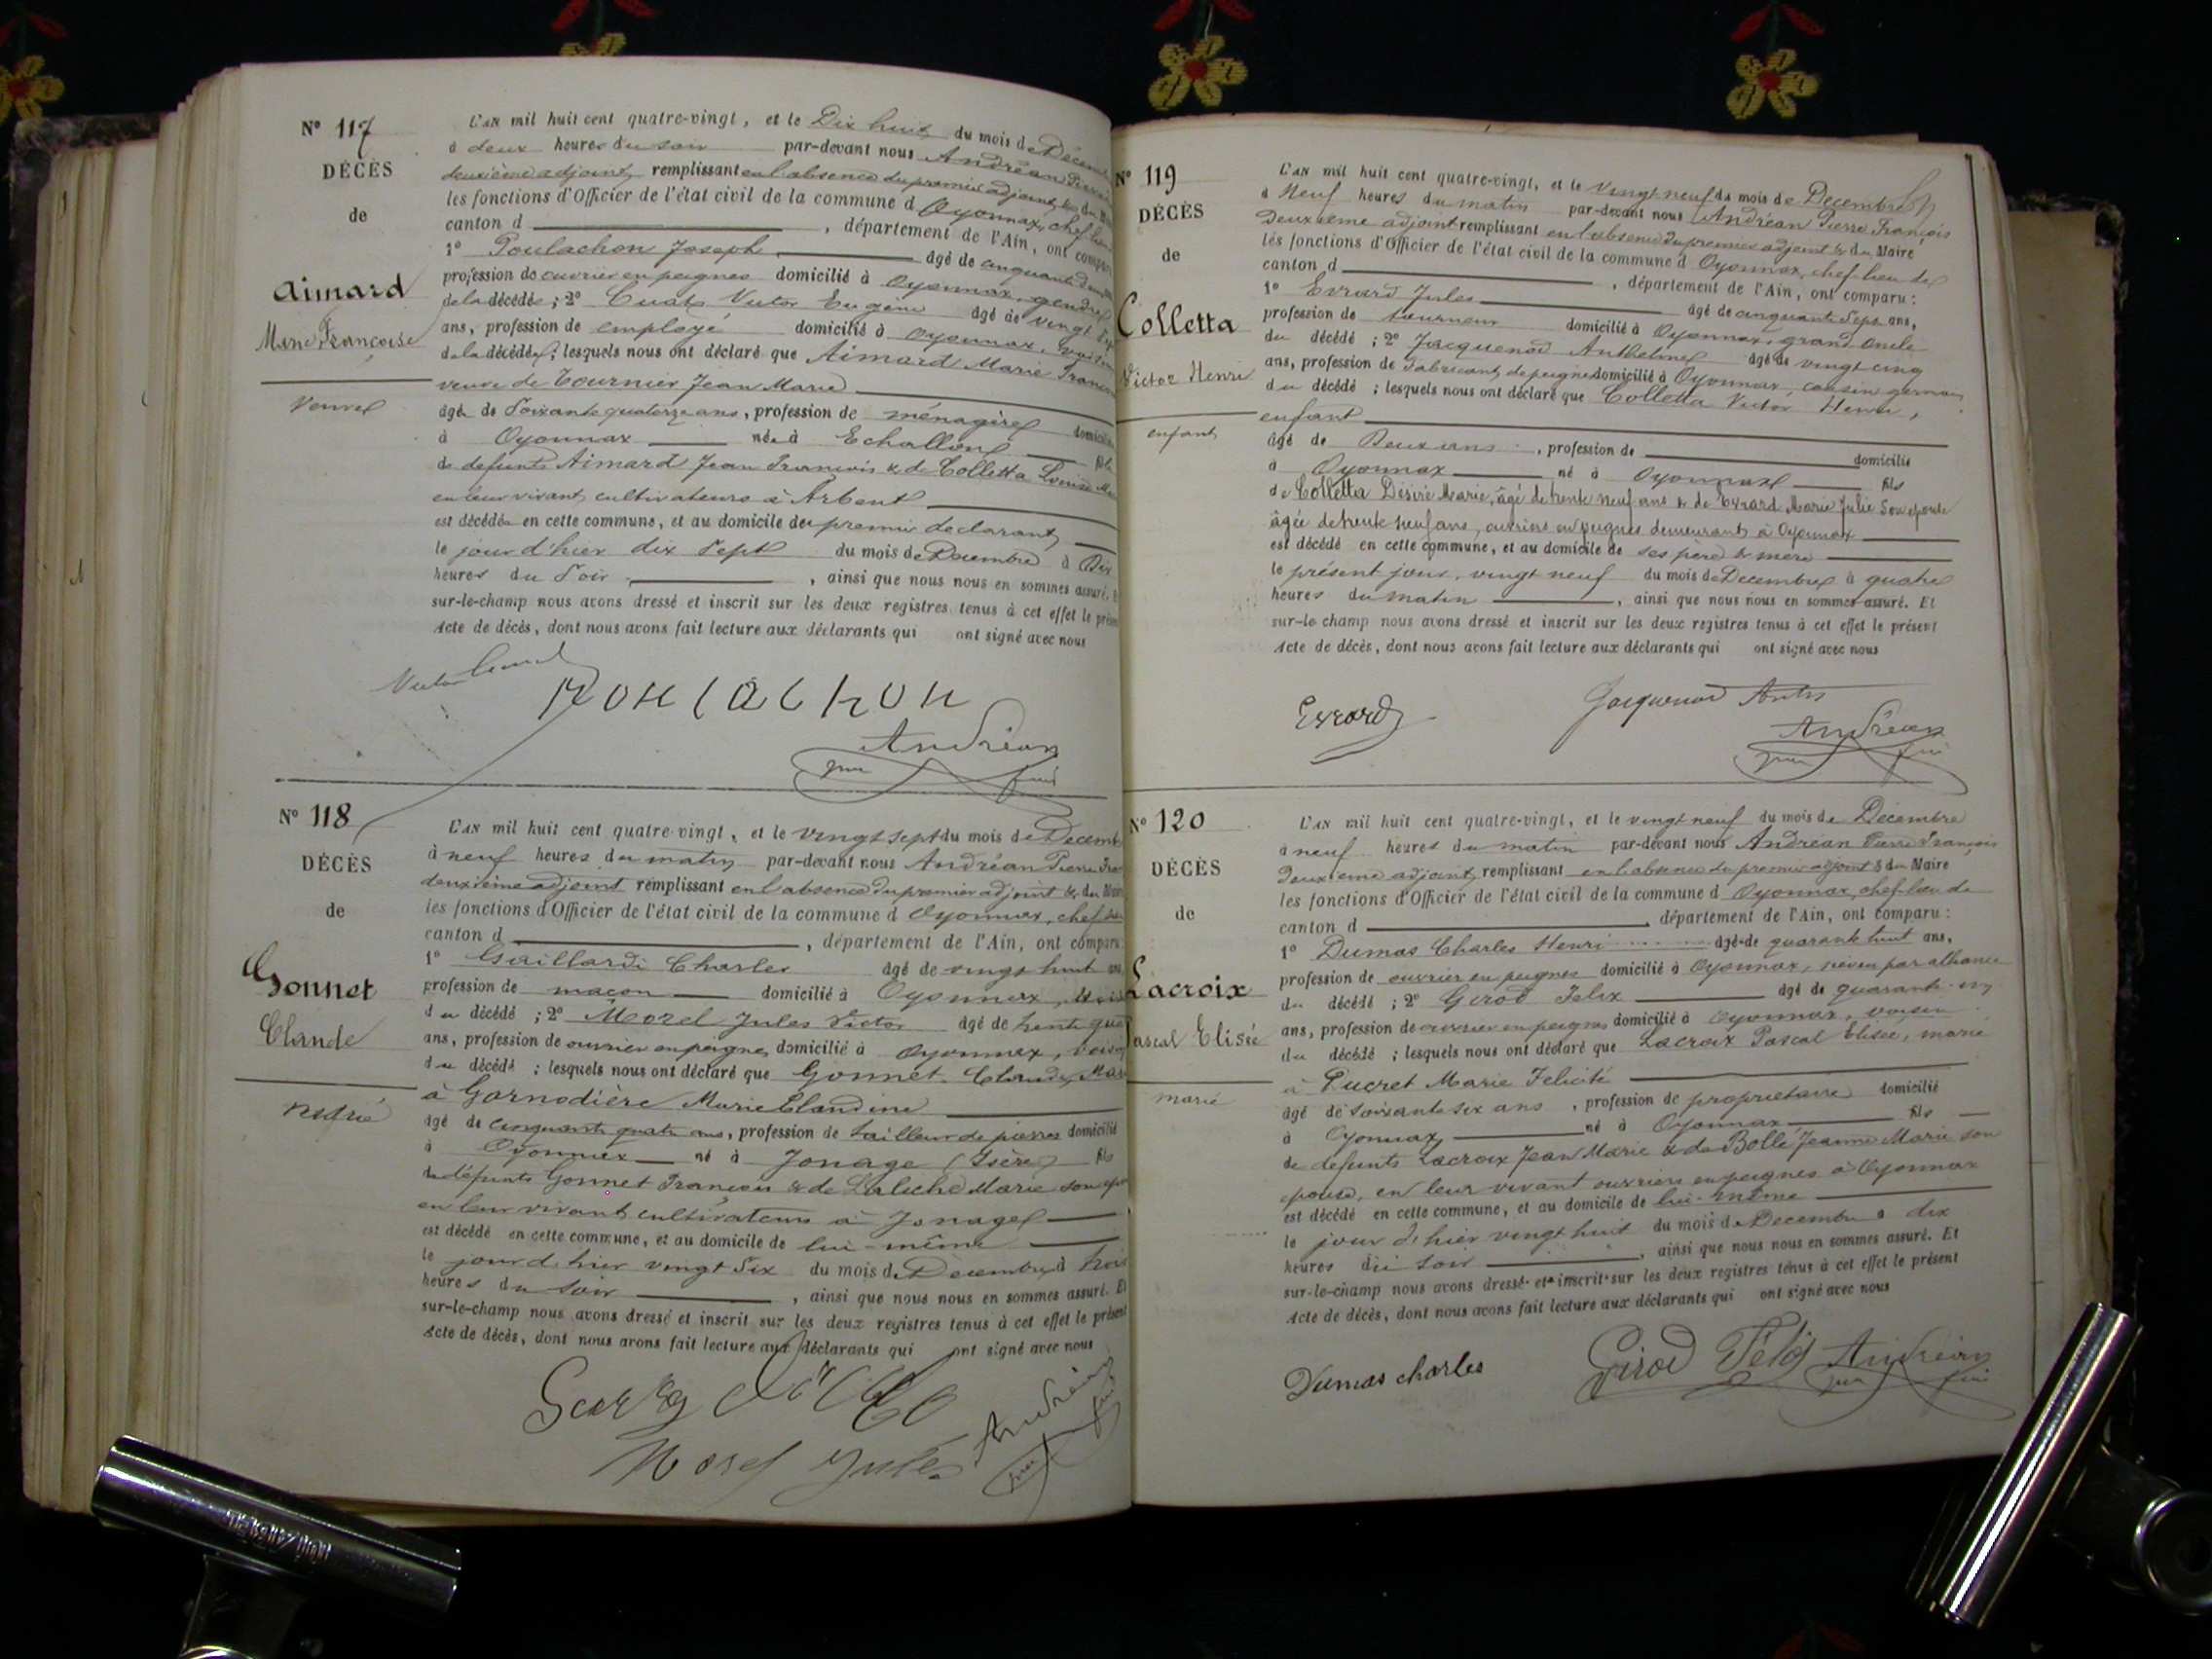 N° 117
DÉCÈS
de
Aimard
Marie Françoise
Veuve
L'AN mil huit cent quatre-vingt, et le Dix huit du mois de Décem
à deux heures du soir par-devant nous Andréan Pierre
deuxième adjoint remplissant en l'absence du premier adjoint & du
les fonctions d'Officier de l'état civil de la commune d Oyonnax, chef lieu
canton d , département de l'Ain, ont compar
1° Poulachon Joseph âgé de cinquante
profession de ouvrier en peignes domicilié à Oyonnax, gendre
de la décédée ; 2° Victor Eugène âgé de vingt
ans, profession de employé domicilié à Oyonnax, voisin
de la décédée ; lesquels nous ont déclaré que Aimard Marie Franço
veuve de Tournier Jean Marie
âgée de Soixante quatorze ans, profession de ménagère domicili
à Oyonnax née à Echallon fille
de défunts Aimard Jean François & de Colletta Louise
en leur vivant cultivateurs à Arbent
est décédée en cette commune, et au domicile du premier déclarant
le jour d'hier dix sept du mois de Décembre à Dix
heures du Soir , ainsi que nous nous en sommes assuré. E
sur-le-champ nous avons dressé et inscrit sur les deux registres tenus à cet effet le prése
Acte de décès, dont nous avons fait lecture aux déclarants qui ont signé avec nous
Victor
Poulachon
Andréan
N° 118
DÉCÈS
de
Gonnet
Claude
marié
L'AN mil huit cent quatre-vingt, et le vingt sept du mois de Décemb
à neuf heures du matin par-devant nous Andréan Pierre Fra
deuxième adjoint remplissant en l'absence du premier adjoint & du Mair
les fonctions d'Officier de l'état civil de la commune d Oyonnax, chef lieu
canton d , département de l'Ain, ont comparu
1° Gaillardi Charles âgé de vingt huit ans
profession de maçon domicilié à Oyonnax, voisin
du décédé ; 2° Morel Jules Victor âgé de trente qua
ans, profession de ouvrier en peignes domicilié à Oyonnax, voisin
du décédé ; lesquels nous ont déclaré que Gonnet Claude, Mar
à Garnodière Marie Claudine
âgé de cinquante quatre ans, profession de tailleur de pierres domicilié
à Oyonnax né à Jonage (Isère) fils
de défunts Gonnet François & de Marie son ép
en leur vivant cultivateurs à Jonage
est décédé en cette commune, et au domicile de lui-même
le jour d'hier vingt Six du mois de Décembre à trois
heures du soir , ainsi que nous nous en sommes assuré. Et
sur-le-champ nous avons dressé et inscrit sur les deux registres tenus à cet effet le présent
Acte de décès, dont nous avons fait lecture aux déclarants qui ont signé avec nous
Morel Jules
Andréan
N° 119
DÉCÈS
de
Colletta
Victor Henri
enfant
L'AN mil huit cent quatre-vingt, et le vingt neuf du mois de Décembre
à Neuf heures du matin par-devant nous Andréan Pierre François
Deuxième adjoint remplissant en l'absence du premier adjoint & du Maire
les fonctions d'Officier de l'état civil de la commune d Oyonnax, chef-lieu de
canton d , département de l'Ain, ont comparu :
1° Evrard Jules âgé de cinquante Sept ans,
profession de tourneur domicilié à Oyonnax, grand oncle
du décédé ; 2° Jacquenod Anthelme âgé de vingt cinq
ans, profession de fabricant de peignes domicilié à Oyonnax, cousin germain
du décédé ; lesquels nous ont déclaré que Colletta Victor Henri,
enfant
âgé de Deux ans , profession de domicilié
à Oyonnax né à Oyonnax fils
de Colletta Désiré Marie, âgé de trente neuf ans & de Evrard Marie Julie Son épouse
âgée de trente neuf ans, ouvriers en peignes demeurant à Oyonnax
est décédé en cette commune, et au domicile de ses père & mère
le présent jour, vingt neuf du mois de Décembre à quatre
heures du matin , ainsi que nous nous en sommes assuré. Et
sur-le champ nous avons dressé et inscrit sur les deux registres tenus à cet effet le présent
Acte de décès, dont nous avons fait lecture aux déclarants qui ont signé avec nous
Evrard
Jacquenod
Andréan
N° 120
DÉCÈS
de
Lacroix
Pascal Elisée
marié
L'AN mil huit cent quatre-vingt, et le vingt neuf du mois de Décembre
à neuf heures du matin par-devant nous Andréan Pierre François
Deuxième adjoint remplissant en l'absence du premier adjoint & du Maire
les fonctions d'Officier de l'état civil de la commune d Oyonnax, chef-lieu de
canton d , département de l'Ain, ont comparu :
1° Dumas Charles Henri âgé de quarante huit ans,
profession de ouvrier en peignes domicilié à Oyonnax, neveu par alliance
du décédé ; 2° Girod Félix âgé de quarante-un
ans, profession de ouvrier en peignes domicilié à Oyonnax, voisin
du décédé ; lesquels nous ont déclaré que Lacroix Pascal Elisée, marié
à Lucret Marie Félicité
âgé de soixante six ans , profession de propriétaire domicilié
à Oyonnax né à Oyonnax fils
de défunts Lacroix Jean Marie & de Bollé Jeanne Marie son
épouse, en leur vivant ouvriers en peignes à Oyonnax
est décédé en cette commune, et au domicile de lui-même
le jour d'hier vingt huit du mois de Décembre à dix
heures du soir , ainsi que nous nous en sommes assuré. Et
sur-le-champ nous avons dressé et inscrit sur les deux registres tenus à cet effet le présent
Acte de décès, dont nous avons fait lecture aux déclarants qui ont signé avec nous
Dumas charles
Girod Félix
Andréan